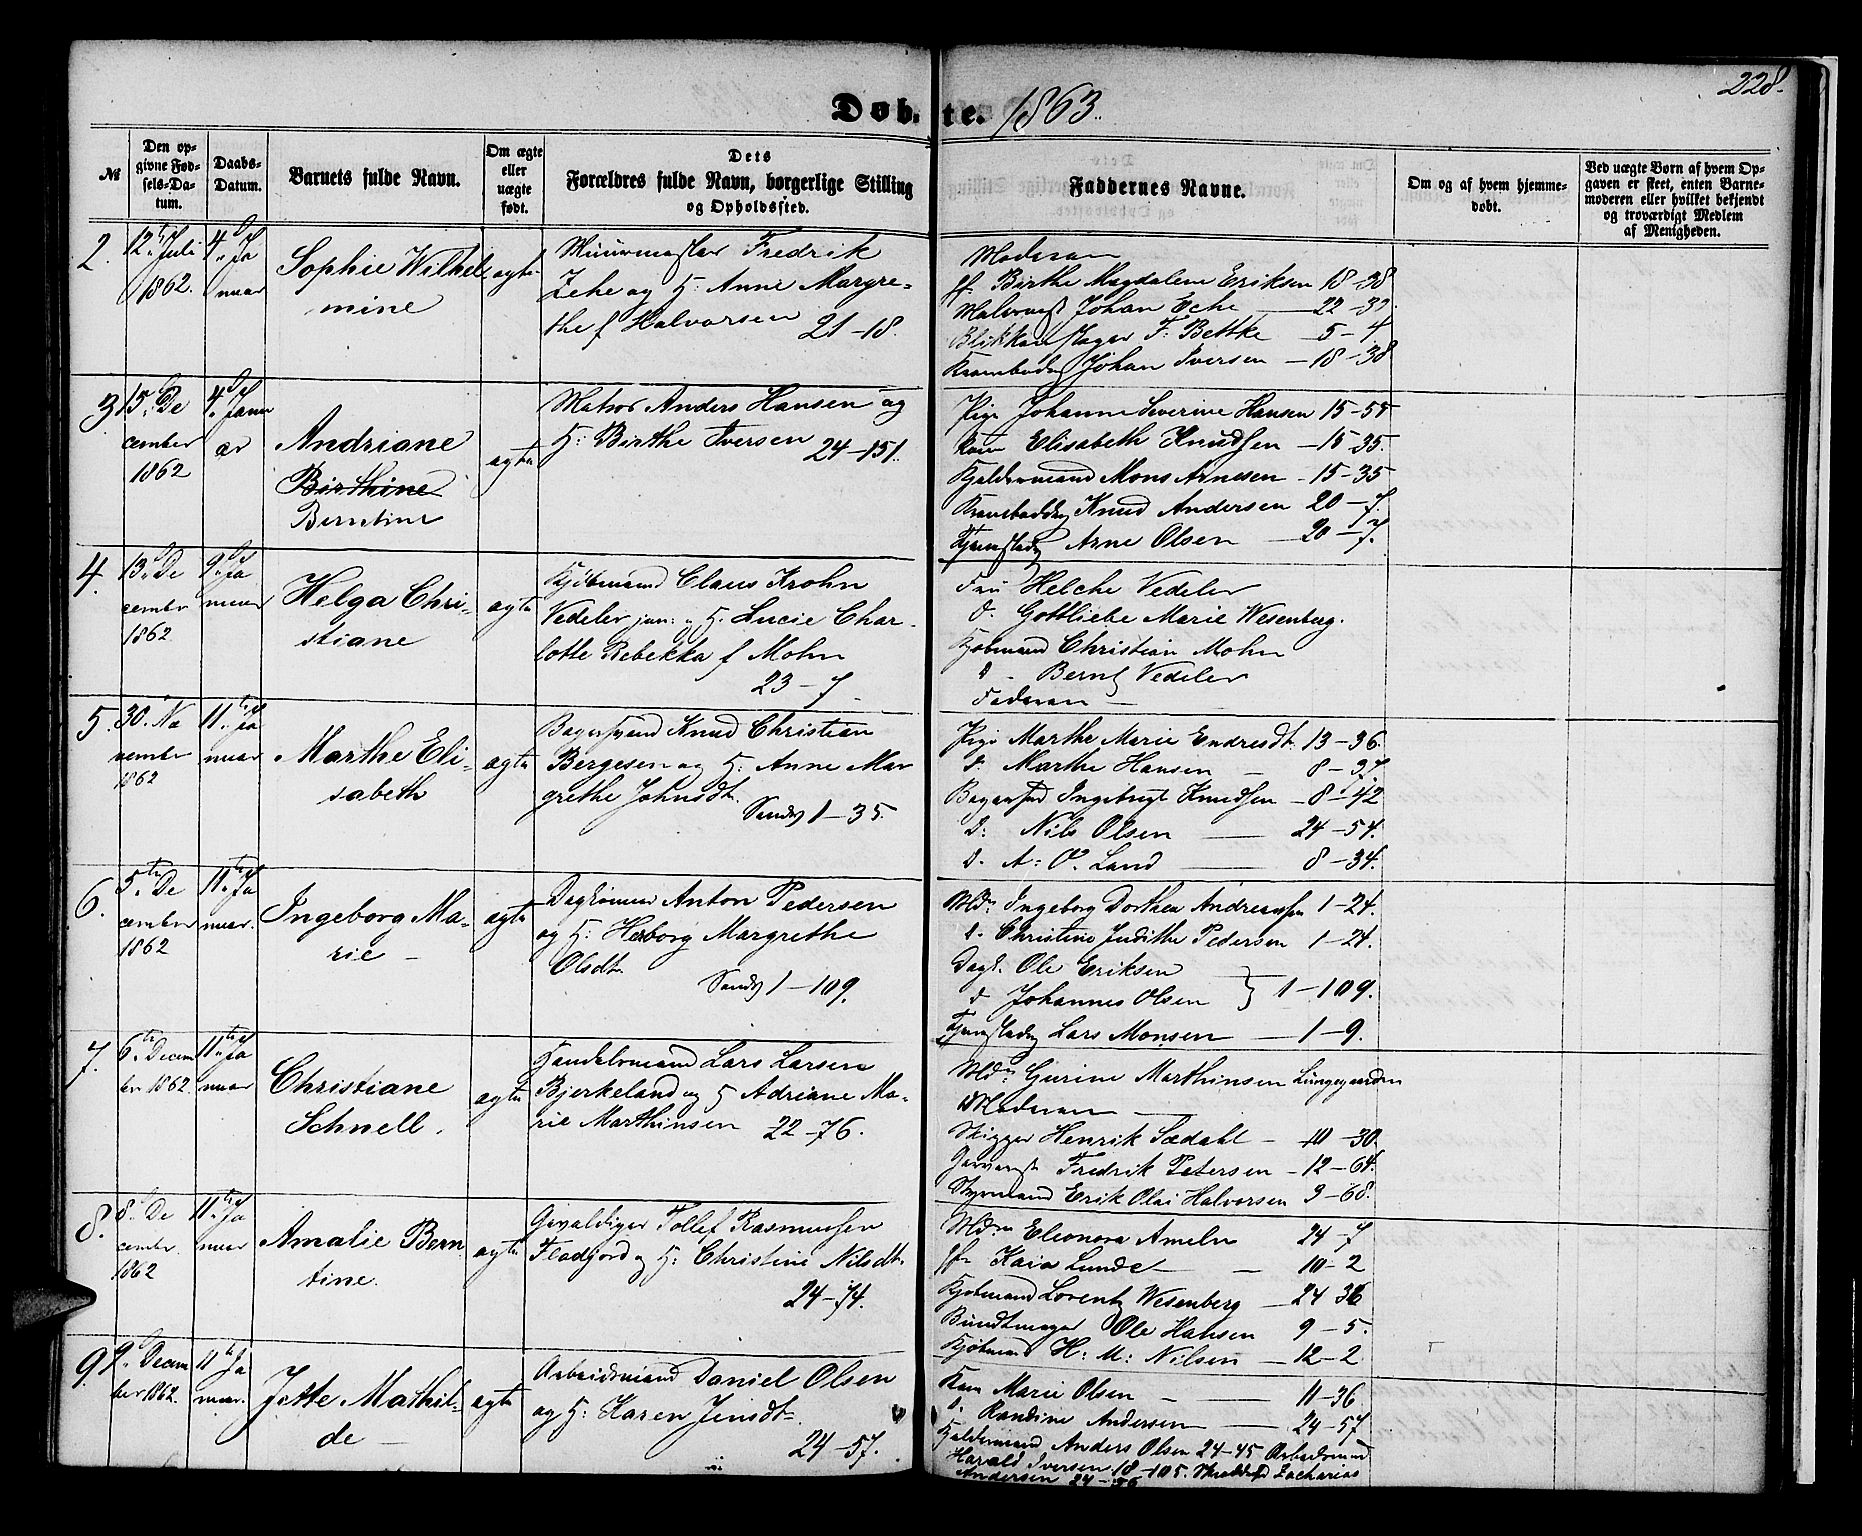 228.
Døbte. 1863.
№
Den opgivne Fødsels-Datum.
Daabs-Datum.
Barnets fulde Navn.
Om ægte eller uægte født.
Dets Forældres fulde Navn, borgerlige Stilling og Opholdssted.
Faddernes Navne.
Om og af hvem hjemmedøbt.
Ved uægte Børn af hvem Opgaven er skeet, enten Barnemoderen eller hvilket bekjendt og troværdigt Medlem af Menigheden.
2.
12te Juli
1862.
4de Ja
nuar
Sophie Wilhel
mine
ægte
Muurmester Fredrik
Zehe og H: Anne Margre-
the f Halvorsen 21-18.
Moderen
Jf. Birthe Magdalene Eriksen 18-38
Malermst Johan Eche 22-32
Blikkenslager F: Bettke 5-4
Johan Iversen 18-38
3
15de De
cember
1862
4de Janu
ar
Andriane
Birthine
Berntine
ægte
Matros Anders Hansen og
H: Birthe Iversen 24-151.
Pige Johanne Severine Hansen 15-55
Kone Elisabeth Knudsen 15-35.
Kjeldermand Mons Arnesen 15-35
Knud Andersen 20-7.
Arne Olsen 20-7.
4.
13de De
cember
1862
9de Ja
nuar
Helga Chri-
stiane
ægte
Kjøbmand Claus Krohn
Vedeler jun: og H. Lucie Char-
lotte Rebekka f Mohn
23-7
Fru Helche Vedeler
d. Gottliebe Marie Wesenberg.
Kjøbmand Christian Mohn
d - Bernt Vedeler
Faderen
5.
30. No
vember
1862
11te Ja
nuar
Marthe Eli-
sabeth
ægte
Bagersvend Knud Christian
Bergesen og H: Anne Mar
grethe Johnsdt.
Sandv 1-35.
Pige Marthe Marie Endresdt. 13-36.
d. Marthe Hansen 8-37.
Bagersvd Ingebrigt Knudsen 8-42
d: Nils Olsen 24-54.
d. A: O. Land 8-34.
6.
5te De
cember
1862
11te Ja
nuar.
Ingeborg Ma-
rie
ægte
Dagkonus Anton Pedersen
og H: Herborg Margrethe
Olsdt.
Sandv 1-109.
Md: Ingeborg Dorthea Andreassen 1-24.
d. Christine Judithe Pedersen 1-24.
Dagk. Ole Eriksen
d Johannes Olsen } 1-109.
Lars Monsen 1-9.
7.
6te Decem
ber 1862.
11te Ja
nuar
Christiane
Schnell.
ægte
Handelsmand Lars Larsen
Bjerkeland og H Adriane Ma-
rie Marthinsen 22-76.
Md: Gurine Marthinsen Lungegaarden
Moderen
Skipper Henrik Sædahl 10-30.
Fredrik Petersen 12-64.
Styrmand Erik Olai Halvorsen 3-68.
8.
8de De
cember
1862
11te Ja
nuar
Amalie Bern
tine.
ægte
Gevaldiger Tollef Rasmussen
Fladfjord og H: Christine Nilsdt.
24-74.
Md: Eleonora Ameln 24-7
Jfr Kaia Lunde 10-2
Kjøbmand Lorentz Wesenberg 24 36
Bundtmager Ole Hansen 9-5.
Kjøbmand H: M: Nilsen 12-2
9.
9de Decem
ber 1862.
11te Ja
nuar.
Jette Mathil-
de
ægte
Arbeidsmand Daniel Olsen
og H: Karen Jensdt.
24-57.
Kone Marie Olsen 11-36
d. Randine Andersen 24-57
Kjeldermand Anders Olsen 24-45 Arbeidsmand
Harald Iversen 18-105. Zacharias
Andersen 24-56